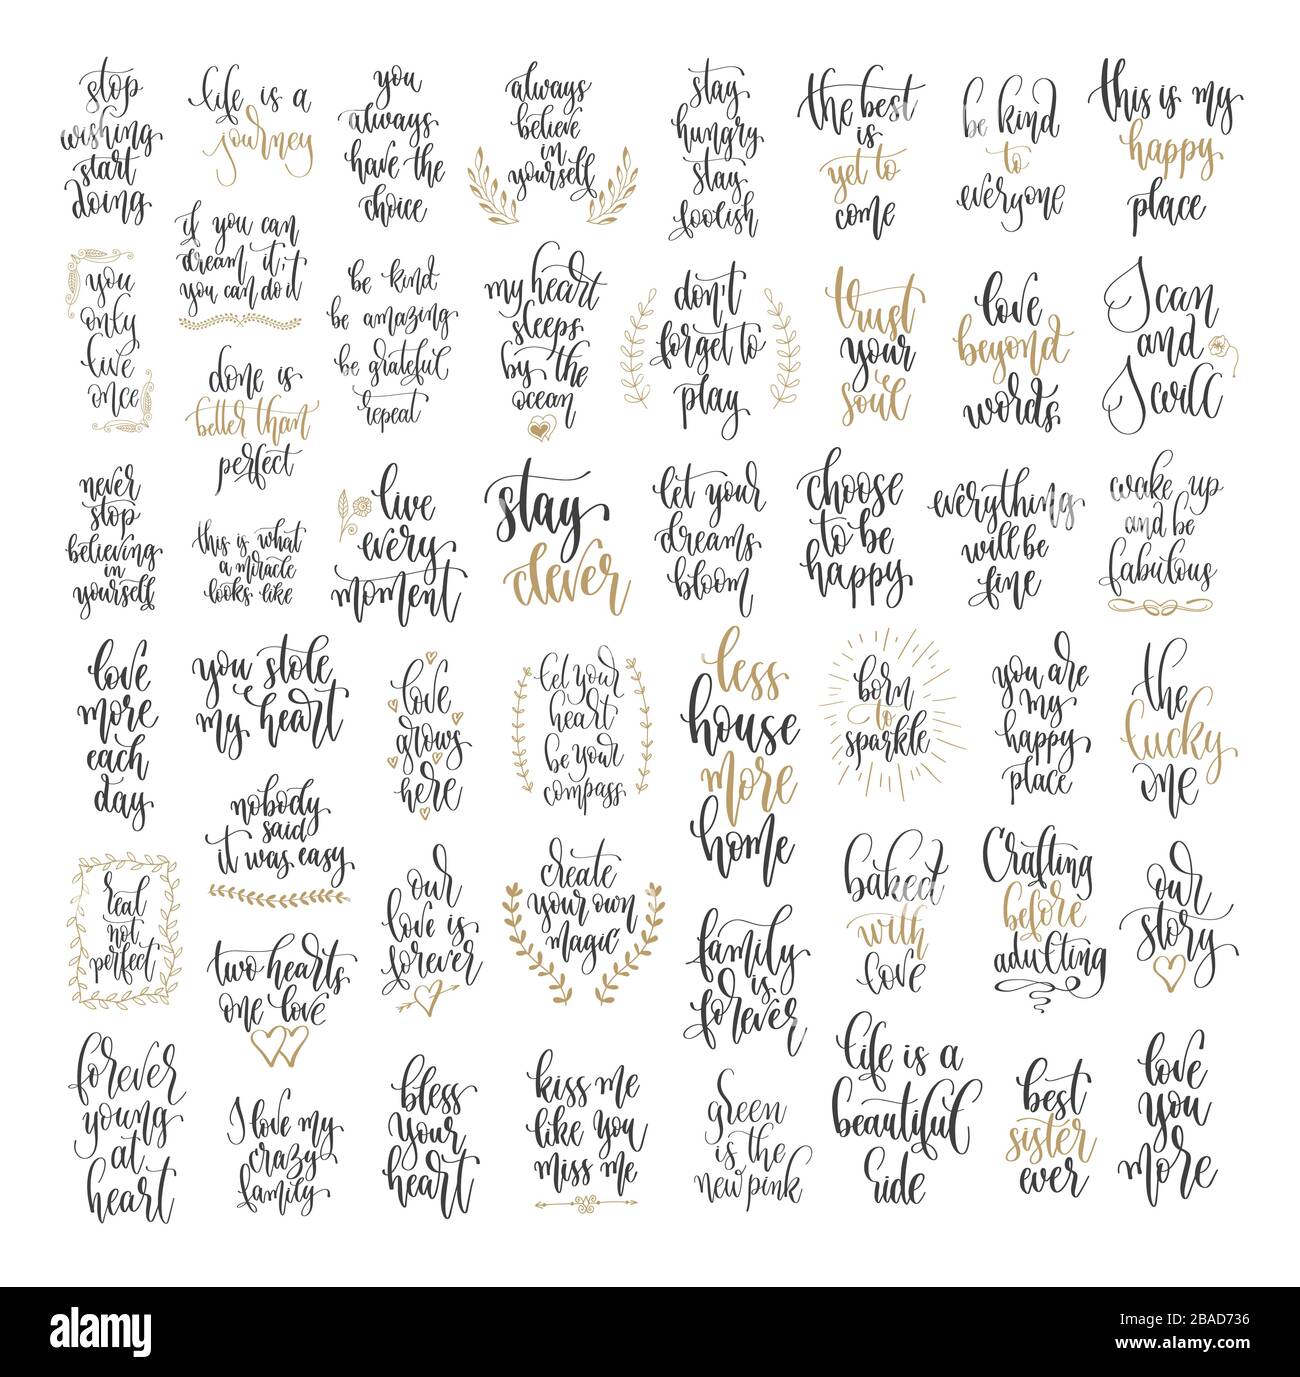 stop
wishing
start
doing
life is a
journey
you
always
have the
choice
always
believe
in
yourself
stay
hungry
stay
foolish
the best
is
yet to
come
be kind
to
everyone
this is my
happy
place
you
only
live
once
if you can
dream it,
you can do it
be kind
be amazing
be grateful
repeat
my heart
sleeps
by the
ocean
don't
forget to
play
trust
your
soul
love
beyond
words
I can
and
I will
done is
better than
perfect
never
stop
believing
in
yourself
this is what
a miracle
looks like
live
every
moment
stay
clever
let your
dreams
bloom
choose
to be
happy
everything
will be
fine
wake up
and be
fabulous
love
more
each
day
you stole
my heart
love
grows
here
let your
heart
be your
compass
less
house
more
home
born
to
sparkle
you are
my
happy
place
the
lucky
one
nobody
said
it was easy
real
not
perfect
our
love is
forever
create
your own
magic
baked
with
love
Crafting
before
adulting
our
story
two hearts
one love
family
is
forever
forever
young
at
heart
I love my
crazy
family
bless
your
heart
kiss me
like you
miss me
green
is the
new pink
life is a
beautiful
ride
best
sister
ever
love
you
more
alamy
Image ID: 2BAD736
www.alamy.com